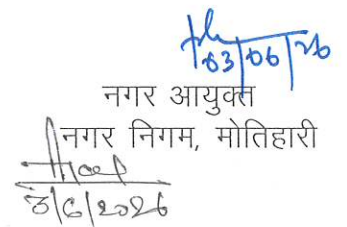 03/06/26
नगर आयुक्त
नगर निगम, मोतिहारी
3/6/2026